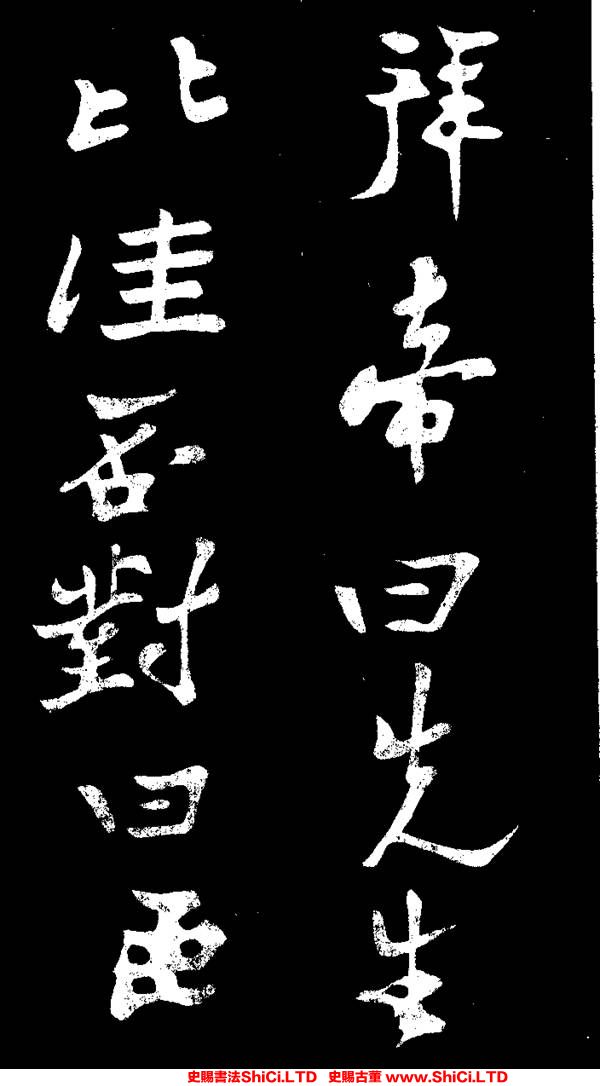 拜帝曰先生
比佳否對曰臣
史賜書法ShiCi.LTD 史賜古董 www.ShiCi.LTD